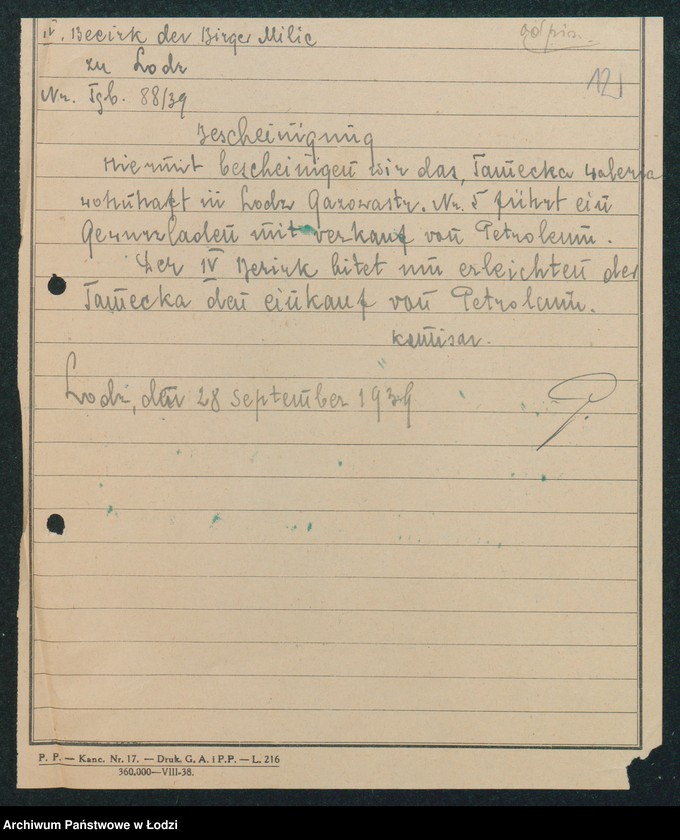 IV. Becirk der Birger Milic
odpis.
zu Lodz
12
Nr. Tgb. 88/39
Bescheinigung
Hiermit bescheinigen wir das, Tamecka Waleria
wohnhaft in Lodz Gazowastr. Nr. 5 führt ein
Gewurzladen mit verkauf von Petroleum.
Der IV Bezirk bitet um erleichten der
Tamecka den einkauf von Petroleum.
Komisar.
Lodz, den 28 September 1939
P. P. — Kanc. Nr. 17. — Druk. G. A. i P.P. — L. 216
360.000—VIII-38.
Archiwum Państwowe w Łodzi